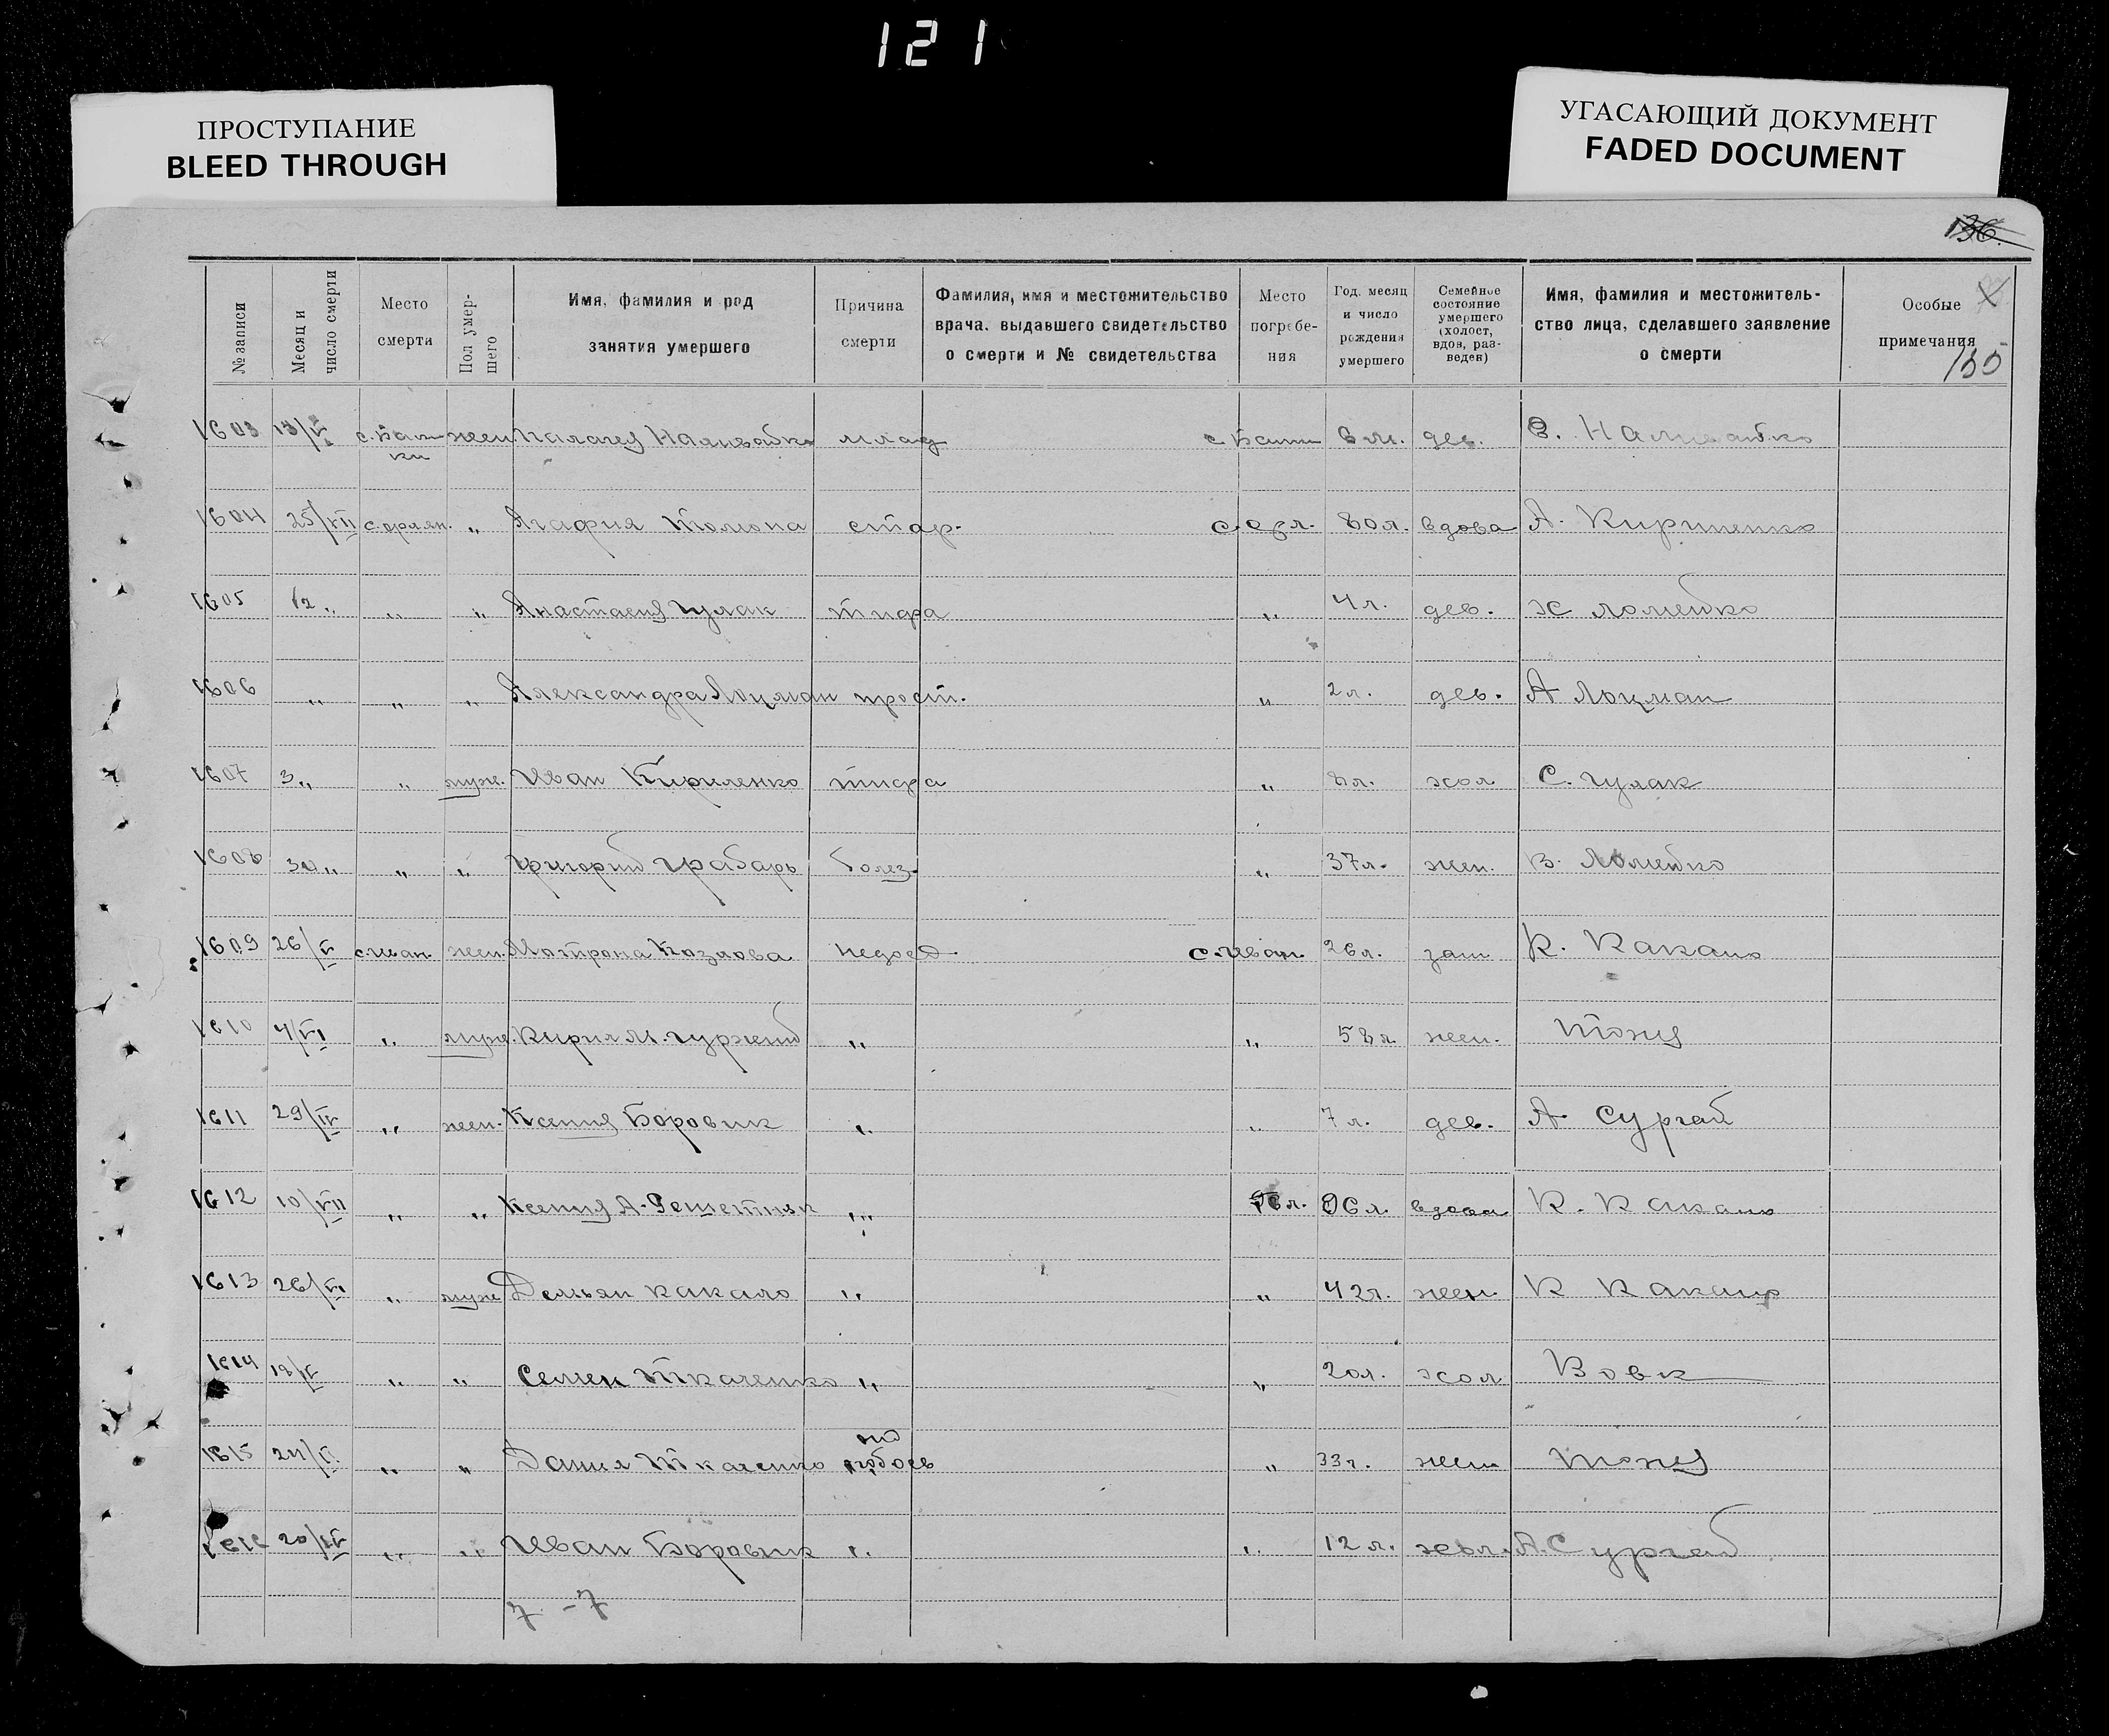 121
ПРОСТУПАНИЕ
BLEED THROUGH
УГАСАЮЩИЙ ДОКУМЕНТ
FADED DOCUMENT
136.
№ записи
Месяц и число смерти
Место смерти
Пол умер-шего
Имя, фамилия и род занятия умершего
Причина смерти
Фамилия, имя и местожительство врача, выдавшего свидетельство о смерти и № свидетельства
Место погребе-ния
Год, месяц и число рождения умершего
Семейное состояние умершего (холост, вдов, раз-веден)
Имя, фамилия и местожитель-ство лица, сделавшего заявление о смерти
Особые примечания
135
1603 13/VI жен. Наливайко млад 6 м. дев. Наливайко
1604 25/VII с. орлян. " Агафия Толмона стар. с. орл. 80л. вдова А. Кириленко
1605 12 " " " Анастасия Гулак тифа " 4 г. дев. Х Ломейко
1606 " " " Александра Лоцман прост. " 2 л. дев. А Лоцман
1607 3 " " муж. Иван Кириленко тифа " 8л. хол С. Гулак
1608 30 " " " Григорий Грабарь болез. " 37л. жен. В. Ломейко
1609 26/VI с. Иван. жен. Мотрона Козлова недоед с. Иван. 26 л. зам К. Какало
1610 4/VI " муж. Кирил М. Гуржий " " 58 л. жен. Тоже
1611 29/IV " жен. Ксения Боровик " " 7 л. дев. А. Сургай
1612 10/VII " " Ксения А. Решетняк " 96 л. вдова К. Какало
1613 26/VI " муж Демьян Какало " " 42 г. жен. К Какало
1614 19/VI " " Семен Ткаченко " " 20 л. хол Вовк
1615 24/VI " " Данил Ткаченко побоев " 33 г. жен Тоже
1616 20/IV " " Иван Боровик " " 12 л. хол. А. Сургай
7 - 7